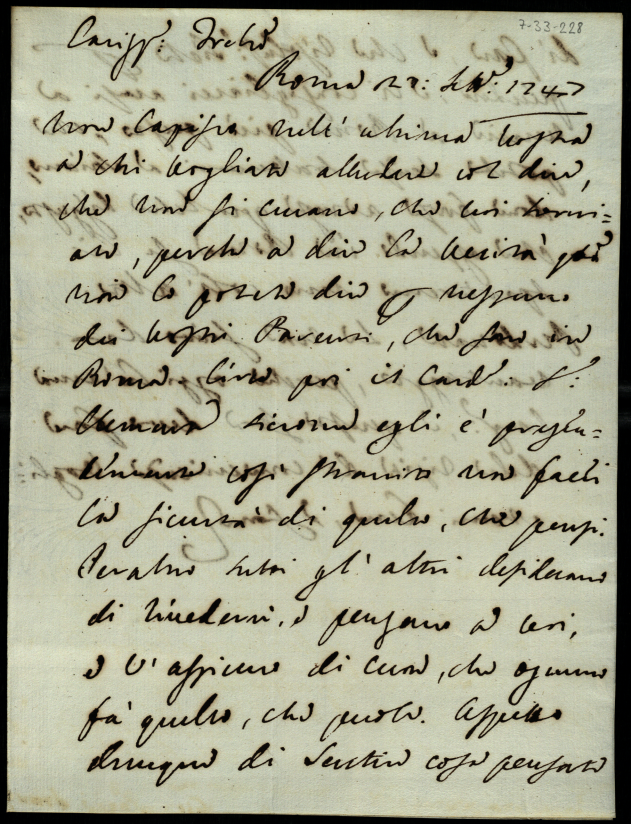 7-33-228
Cariss: Frello
Roma 27: 1747
non Capisco nell' ultima vostra
a chi vogliate alludere col dire,
che non si curano, che voi torni=
ate, perche a dire la verità già
non lo potete dire p nessuno
dei vostri Parenti, che sono in
Roma. Circa poi il Card: S:
Clemente siccome egli è presen=
temente così stranito non farei
la sicurtà di quello, che pensi.
Peraltro tutti gl' altri desiderano
di rivedervi, e pensano a voi,
e v' assicuro di cuore, che ognuno
fà quello, che puole. Aspetto
dunque di sentire cosa pensate